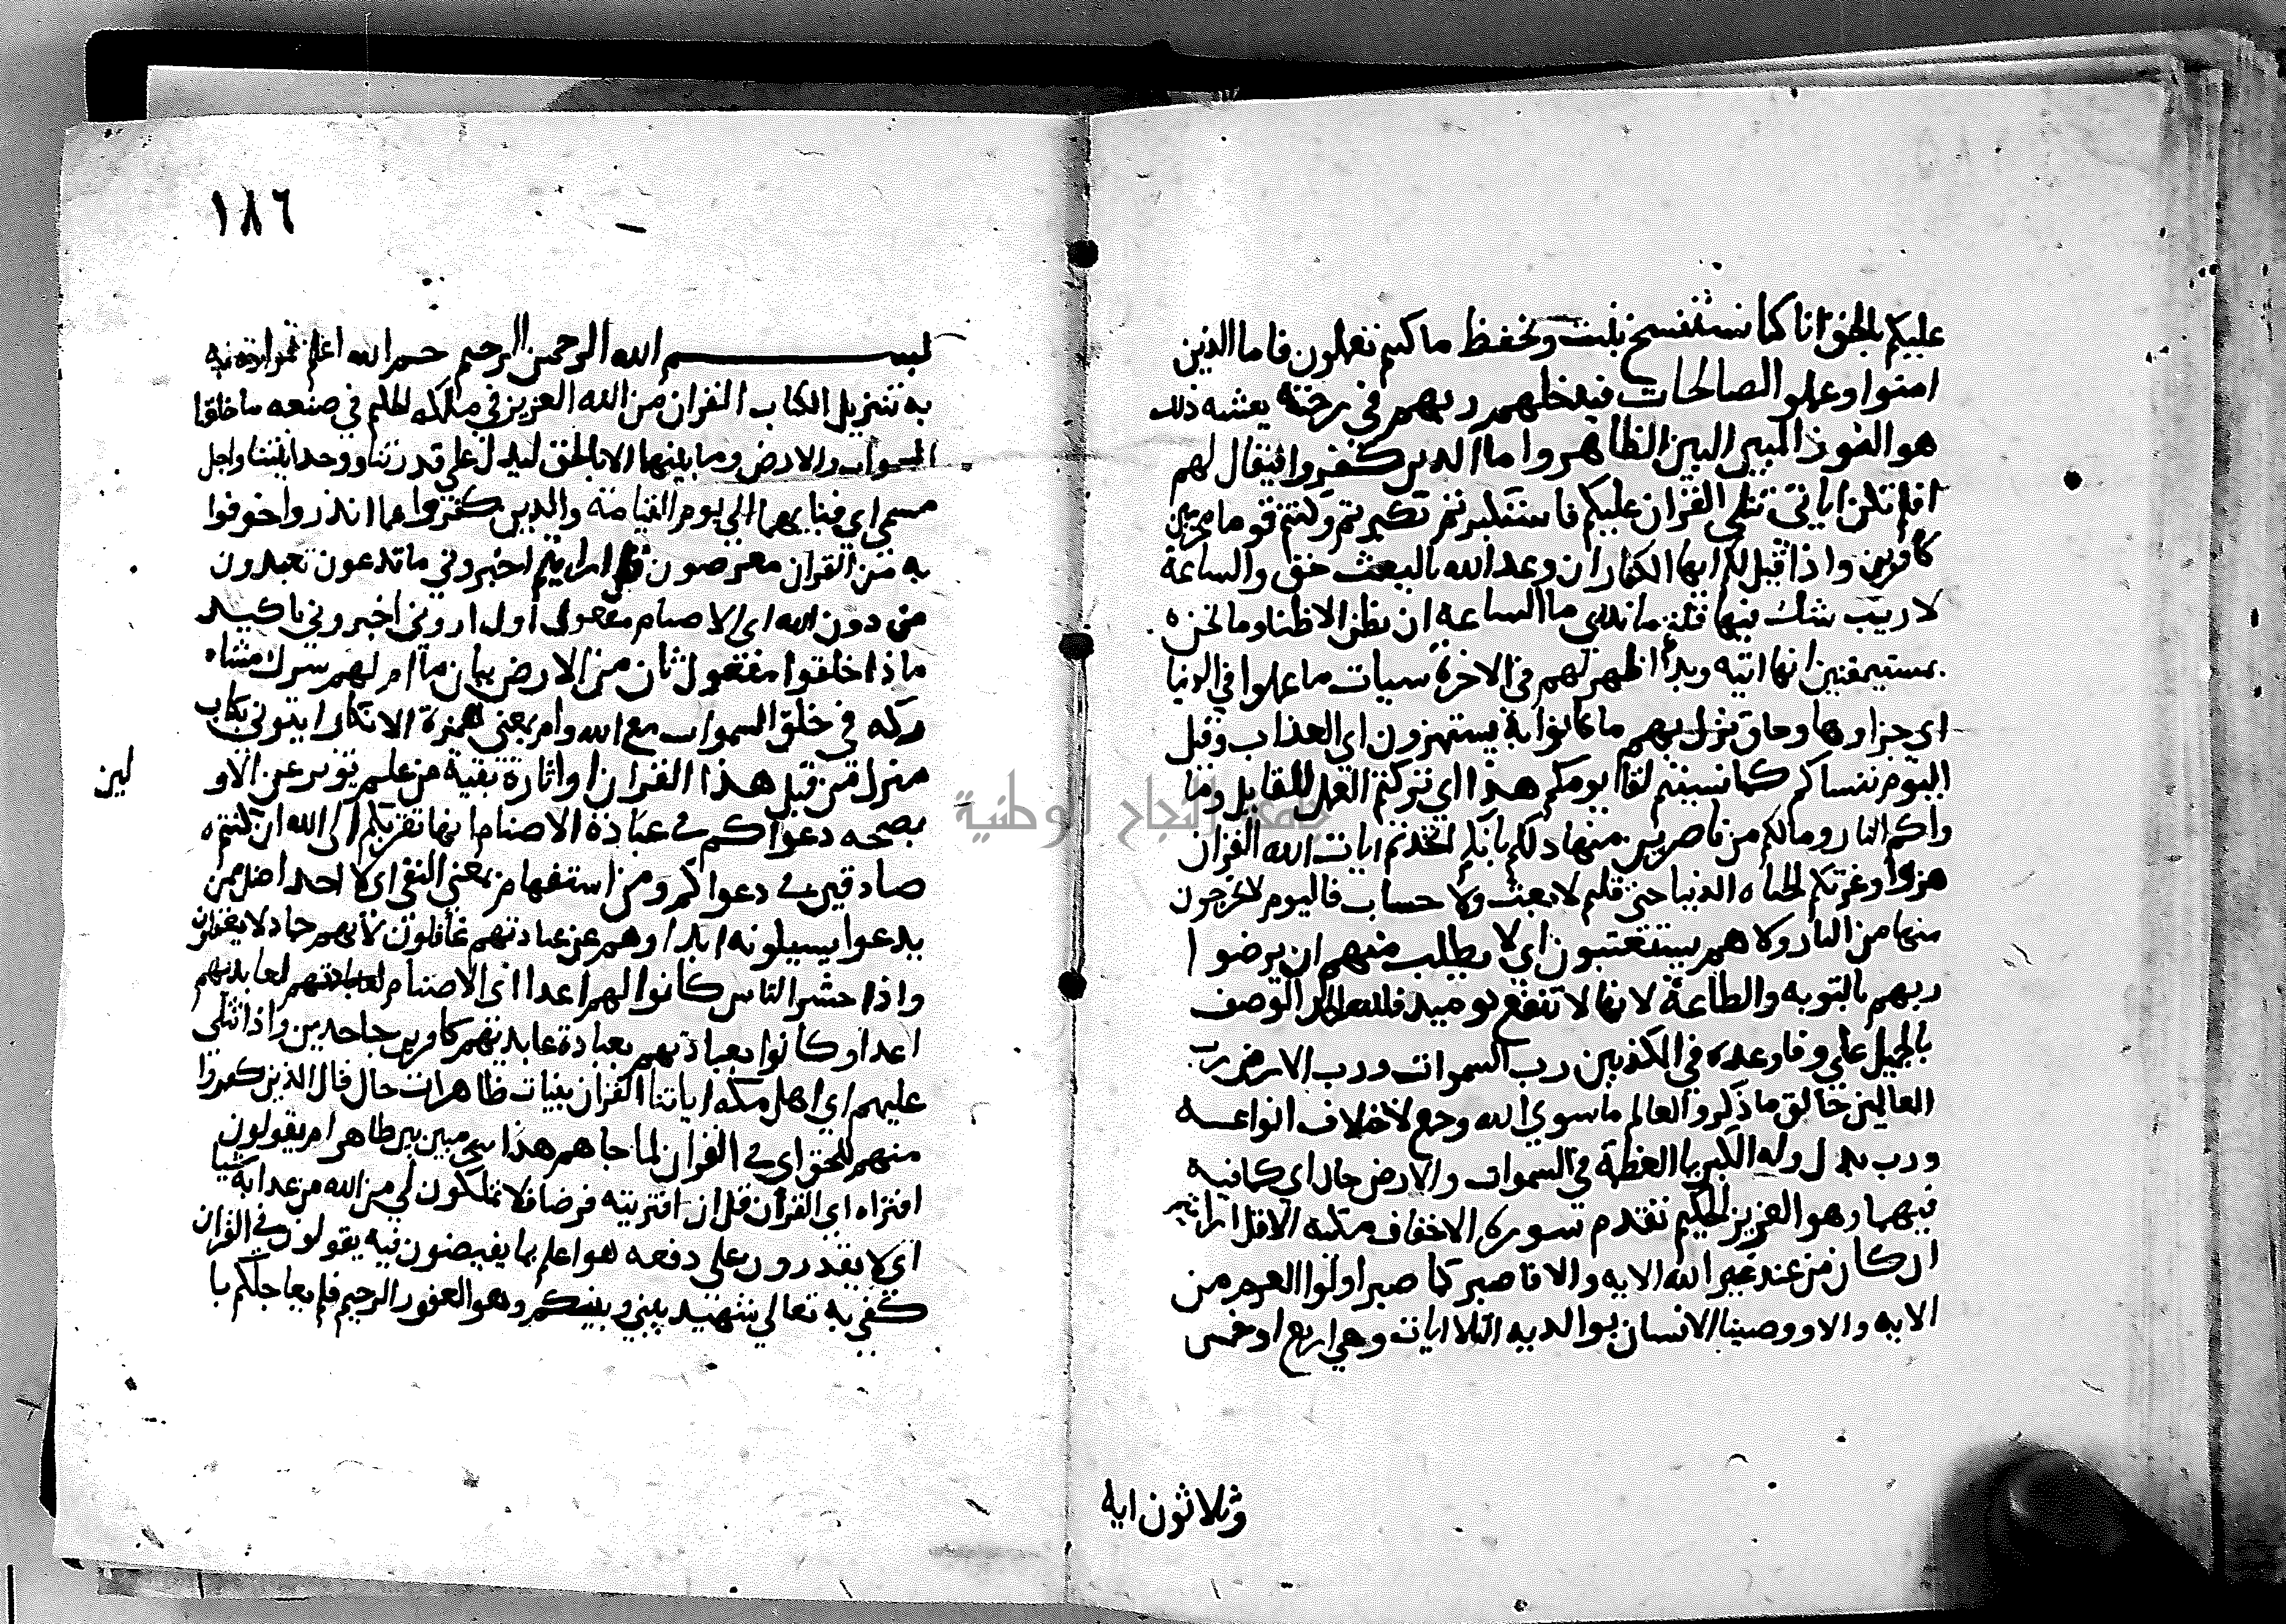 عليكم بالحق انا كنا نستنسخ نثبت ونحفظ ما كنتم تعملون فاما الذين
امنوا وعملوا الصالحات فيدخلهم ربهم في رحمته جنته ذلك
هو الفوز المبين البين الظاهر واما الذين كفروا فيقال لهم
افلم تكن اياتي تتلى القران عليكم فاستكبرتم تكبرتم وكنتم قوما مجرمين
كافرين واذا قيل لكم ايها الكفار ان وعد الله بالبعث حق والساعة
لا ريب شك فيها قلتم ما ندري ما الساعه ان نظن الا ظنا وما نحن
بمستيقنين انها اتيه وبدا ظهر لهم في الاخرة سيات ما عملوا في الدنيا
اي جزاوها وحاق نزل بهم ما كانوا به يستهزون اي العذاب وقيل
اليوم ننساكم كما نسيتم لقا يومكم هذا اي تركتم العمل للقايل وما
واكم النار ومالكم من ناصرين منها ذلكم بانكم اتخذتم ايات الله القران
هزوا وغرتكم الحياه الدنيا حتى قلتم لا بعث ولا حساب فاليوم لا يخرجون
منها من النار ولا هم يستعتبون اي لا يطلب منهم ان يرضوا
ربهم بالتوبه والطاعة لانها لا تنفع يوميد فلله الحمد الوصف
بالجميل علي وفا وعده في المكذبين رب السموات ورب الارض رب
العالمين خالق ما ذكر والعالم ما سوي الله وجمع لاختلاف انواعه
ورب بدل وله الكبريا العظمة في السموات والارض حال اي كاينة
فيهما وهو العزيز الحكيم تقدم سورة الاحقاف مكيه الا قل ارايتم
ان كان من عند غير الله الايه والا فاصبر كما صبر اولوا العزم من
الايه والا ووصينا الانسان بوالديه الثلاث ايات وهي اربع او خمس
وثلاثون ايه
١٨٦
بسم الله الرحمن الرحيم حم الله اعلم بمراده
به تنزيل الكتاب القران من الله العزيز في ملكه الحكيم في صنعه ما خلقنا
السموات والارض وما بينهما الا بالحق ليدل علي قدرتنا ووحدانيتنا واجل
مسمي اي فنايهما الي يوم القيامة والذين كفروا عما انذروا خوفوا
به من القران معرضون قل ارايتم اخبروني ما تدعون تعبدون
من دون الله اي الاصنام مفعول اول اروني اخبروني تاكيد
ماذا خلقوا مفعول ثان من الارض بيان ما ام لهم شرك مشا
ركه في خلق السموات مع الله وام بمعني همزة الانكار ايتوني بكتاب
منزل من قبل هذا القران او اثارة بقية من علم يوثر عن الاو
لين
بصحه دعواكم في عبادة الاصنام انها تقربكم الى الله ان كنتم
صادقين في دعواكم ومن استفهام بمعني النفي اي لا احد اضل ممن
يدعوا يسيلونه ابدا وهم عن عبادتهم غافلون لانهم جماد لا يعقلون
واذا حشر الناس كانوا لهم اعدا اي الاصنام لعابديهم
اعدا وكانوا بعبادتهم بعبادة عابديهم كافرين جاحدين واذا تتلى
عليهم اي اهل مكه اياتنا القران بينات ظاهرات حال قال الذين كفروا
منهم للحق اي في القران لما جاهم هذا سحر مبين بين ظاهر ام يقولون
افتراه اي القران قل ان افتريته فرضا فلا تملكون لي من الله من عدابه شيا
اي لا تقدرون على دفعه هو اعلم بما يفيضون فيه يقولون في القران
كفي به تعالي شهيد بيني وبينكم وهو الغفور الرحيم فلم يعاجلكم با
جامعة النجاح الوطنية